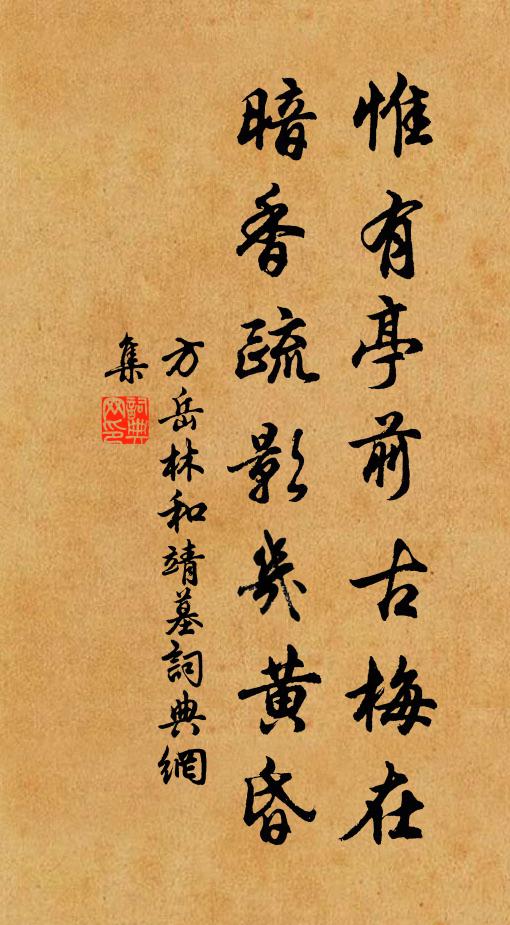 惟有亭前古梅在
暗香疏影幾黃昏
方岳林和靖墓詞典網
集
詞典网印